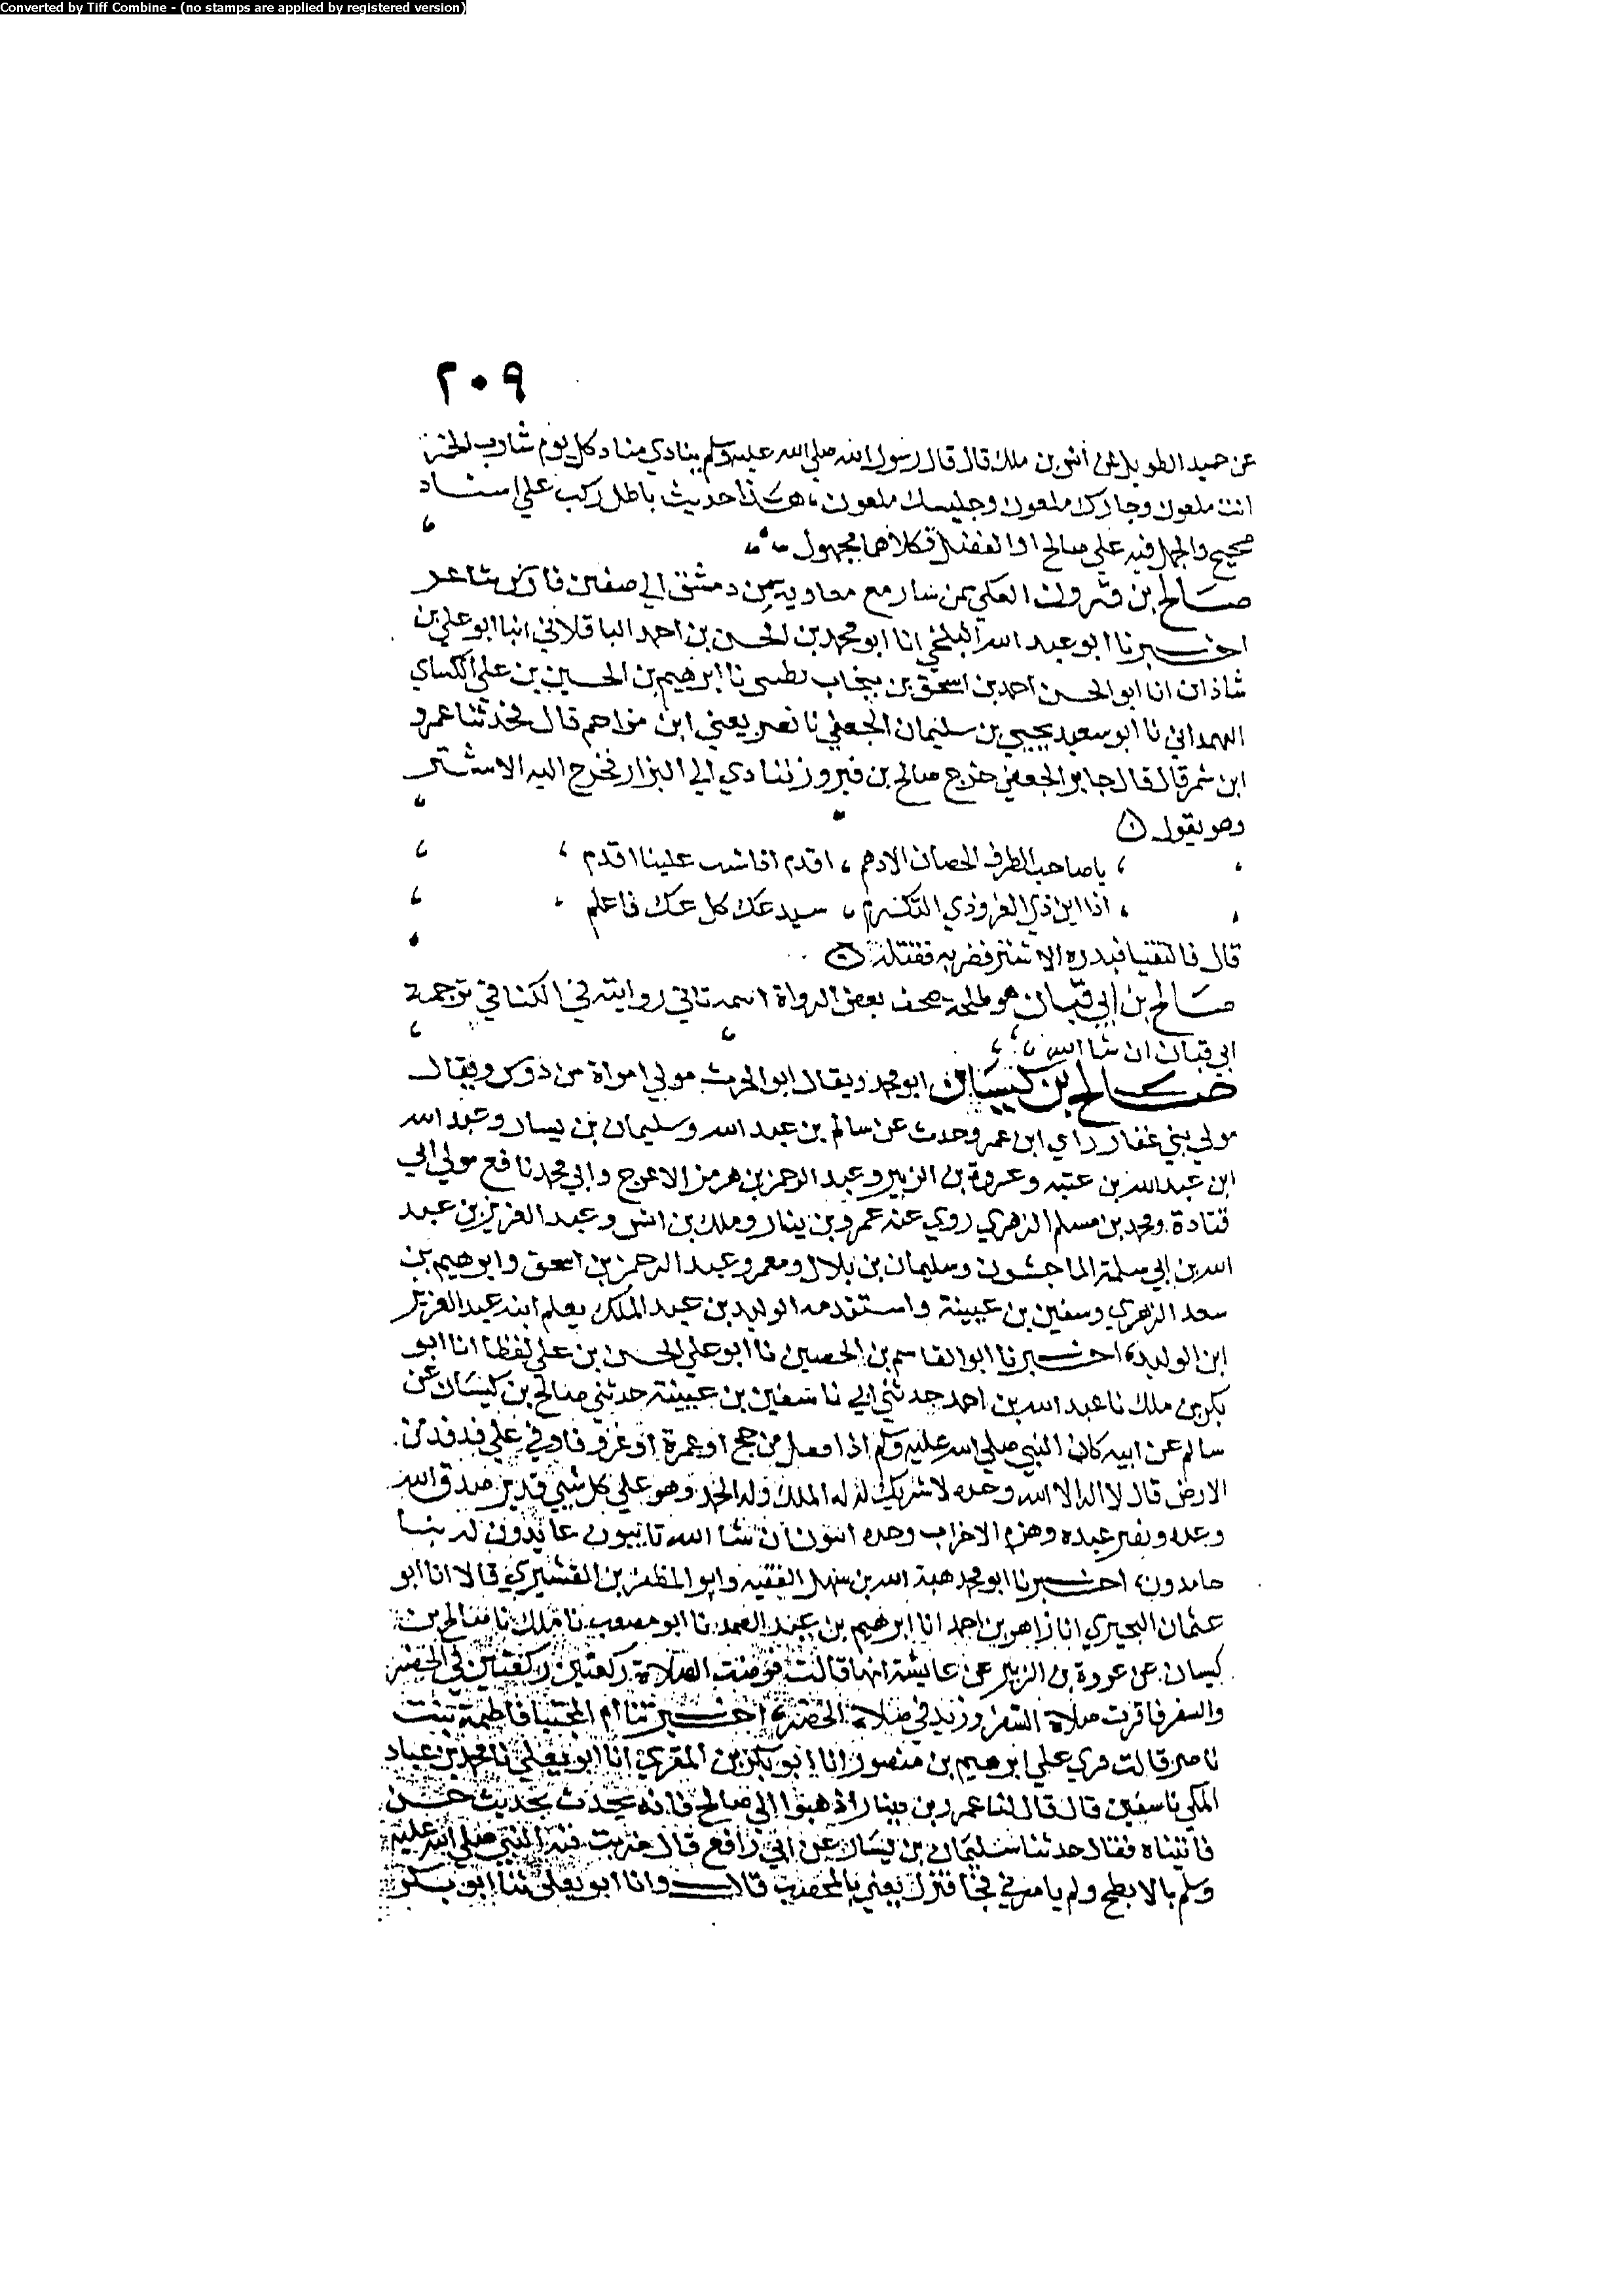 Converted by Tiff Combine - (no stamps are applied by registered version)
٢٠٩
عن حميد الطويل عن أنس بن ملك قال قال رسول الله صلي الله عليه وسلم ينادي مناد كل يوم شارب الخمر
انت ملعون وجارك ملعون وجليسك ملعون، هكذا حديث باطل ركب علي اسناد
صحيح والحمل فيه علي صالح او الفضل فكلاهما مجهول
صالح بن فيروز العكي ممن سار مع معاوية من دمشق الي صفين فارس شاعر
اخبرنا ابو عبد الله البلخي انا ابو محمد بن الحسن بن احمد الباقلاني انبا ابو علي بن
شاذان انا ابو الحسن احمد بن اسحق بن نيخاب نا ابرهيم بن الحسين بن علي الكساي
الهمداني نا ابو سعيد يحيي بن سليمان الجعفي نا نصر يعني ابن مزاحم قال فحدثنا عمرو
ابن شمر قال قال جابر الجعفي خرج صالح بن فيروز ننادي الي البزار فخرج اليه الاشتر
وهو يقول
يا صاحب الطرف الحصان الادهم، اقدم اذا شت علينا اقدم
اذا ابن ذي العز وذي التكرم، سيد عك كل عك فاعلم
قال فالتقيا فبدره الاشتر فضربه فقتله
صالح بن ابي قبان هو طلحة صحف بعض الرواة اسمه تاتي روايته في الكنا في ترجمة
ابي قبان ان شا الله
صالح بن كيسان ابو محمد ويقال ابو الحرث مولي امراة من دوس ويقال
مولي بني غفار راي ابن عمر وحدث عن سالم بن عبد الله وسليمان بن يسار وعبد الله
ابن عبد الله بن عتبه وعروة بن الزبير وعبد الرحمن بن هرمز الاعرج وابي محمد نافع مولي ابي
قتادة ومحمد بن مسلم الزهري روي عنه عمرو بن ينار وملك بن انس وعبد العزيز بن عبد
الله بن ابي سلمة الماجشون وسليمان بن بلال ومعمر وعبد الرحمن بن اسحق وابرهيم بن
سعد الزهري وسفين بن عيينة واستقدمه الوليد بن عبد الملك يعلم ابنه عبد العزيز
ابن الوليد، اخبرنا ابو القاسم بن الحصين نا ابو علي الحسن بن علي لفظا انا ابو
بكر بن ملك نا عبد الله بن احمد حدثني ابي نا سفين بن عيينة حدثني صالح بن كيسان عن
سالم عن ابيه كان النبي صلي الله عليه وسلم اذا قفل من حج او عمرة او غزو فاوفي علي فدفد من
الارض قال لا اله الا الله وحده لا شريك له له الملك وله الحمد وهو علي كل شي قدير صدق الله
وعده ونصر عبده وهزم الاحزاب وحده ايبون ان شا الله تايبون عابدون لربنا
حامدون، اخبرنا ابو محمد هبة الله بن سهل الفقيه وابو المظفر بن القشيري قالا انا ابو
عثمان البحيري انا زاهر بن احمد انا ابرهيم بن عبد الصمد نا ابو مصعب نا ملك نا صالح بن
كيسان عن عروة بن الزبير عن عايشة انها قالت فرضت الصلاة ركعتين ركعتين في الحضر
والسفر فاقرت صلاة السفر وزيد في صلاة الحضر، اخبرتنا ام المجتبا فاطمة بنت
ناصر قالت قري علي ابرهيم بن منصور انا ابو بكر بن المقري انا ابو يعلي نا محمد بن عباد
المكي نا سفين قال قال لنا عمرو بن دينار اذهبوا الي صالح فانه يحدث بحديث حسن
فاتيناه فقال حدثنا سليمان بن يسار عن ابي رافع قال ضربت قبة النبي صلي الله عليه
وسلم بالابطح ولم يامرني فجا فنزل يعني بالمحصب قال وانا ابو يعلي ثنا ابو بكر